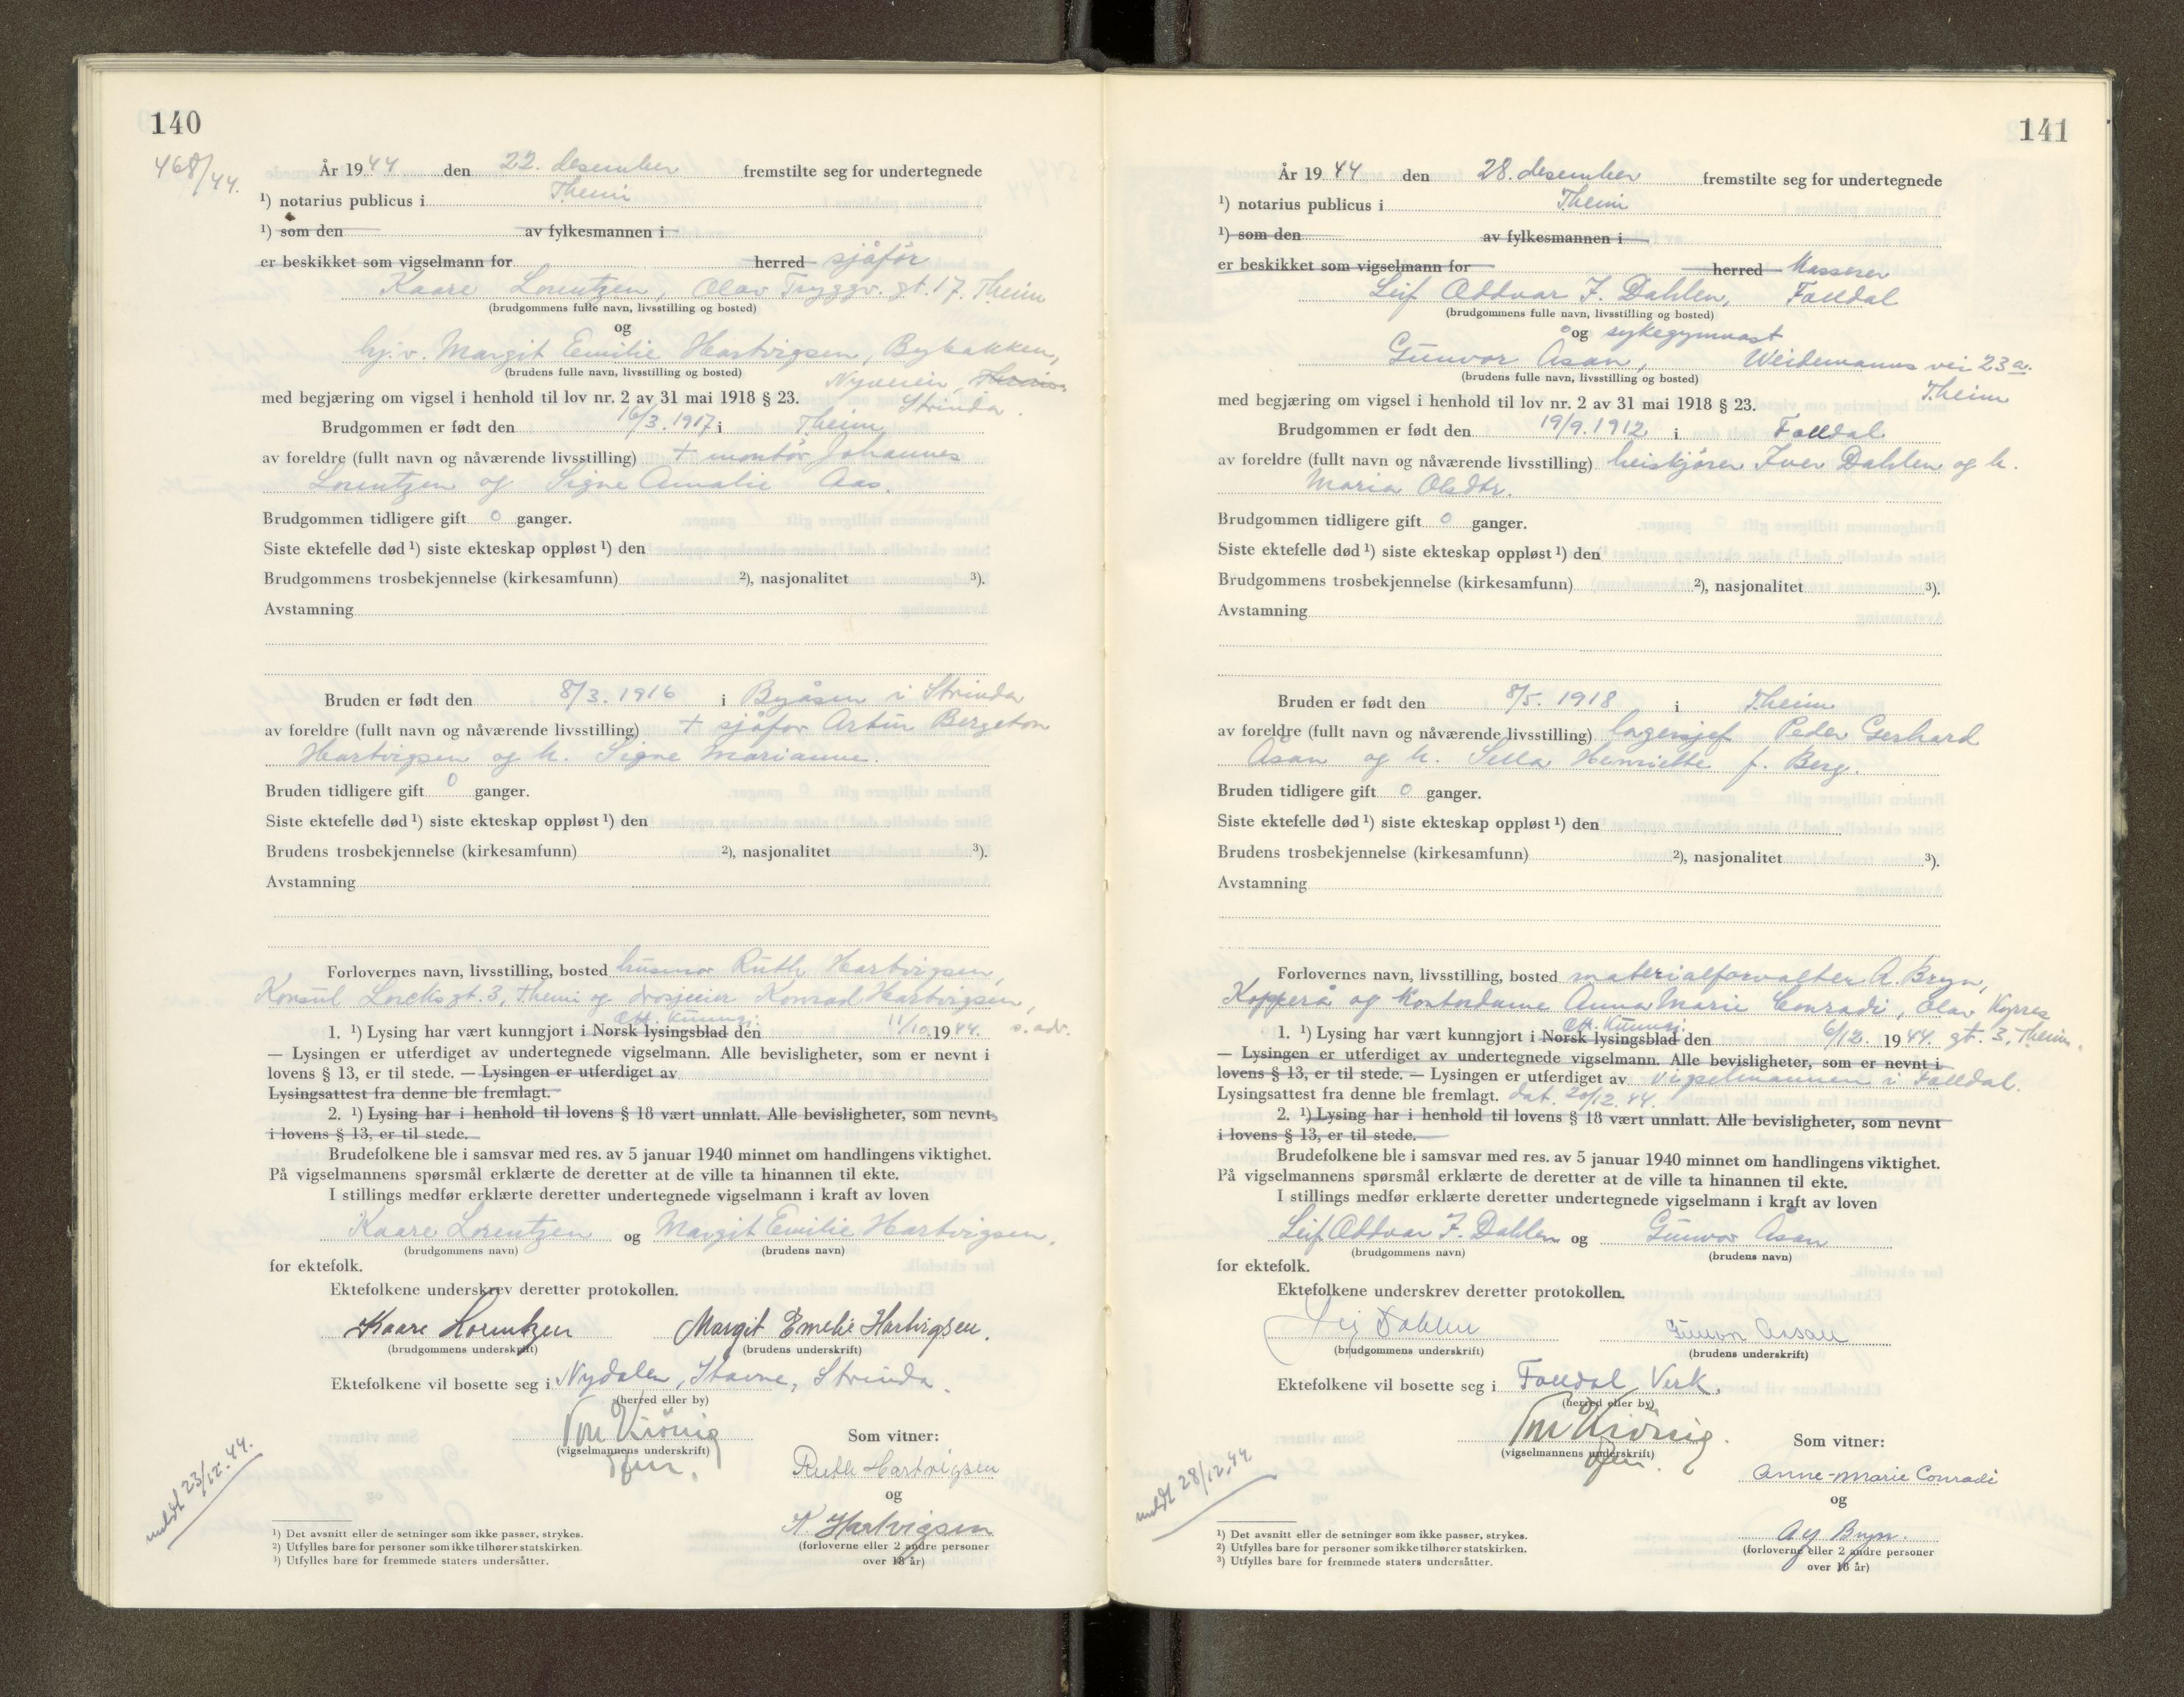 140
468/44.
År 1944 den 22. desember fremstilte seg for undertegnede
¹) notarius publicus i Theim
¹) som den av fylkesmannen i
er beskikket som vigselmann for herred sjåfør
Kaare Lorentzen, Olav Tryggv. gt. 17. Theim
(brudgommens fulle navn, livsstilling og bosted)
og
hj.v. Margit Emilie Hartvigsen, Bybakken,
(brudens fulle navn, livsstilling og bosted)
Nyveien, Theim
med begjæring om vigsel i henhold til lov nr. 2 av 31 mai 1918 § 23. Strinda.
Brudgommen er født den 16/3. 1917 i Theim
av foreldre (fullt navn og nåværende livsstilling) + montør Johannes
Lorentzen og Signe Amalie Aas.
Brudgommen tidligere gift 0 ganger.
Siste ektefelle død ¹) siste ekteskap oppløst ¹) den
Brudgommens trosbekjennelse (kirkesamfunn) ²), nasjonalitet ³).
Avstamning
Bruden er født den 8/3. 1916 i Byåsen i Strinda
av foreldre (fullt navn og nåværende livsstilling) + sjåfør Artur Bergeton
Hartvigsen og h. Signe Marianne.
Bruden tidligere gift 0 ganger.
Siste ektefelle død ¹) siste ekteskap oppløst ¹) den
Brudens trosbekjennelse (kirkesamfunn) ²), nasjonalitet ³).
Avstamning
Forlovernes navn, livsstilling, bosted husmor Ruth Hartvigsen,
Konsul Lorcks gt. 3, Theim og drosjeeier Konrad Hartvigsen,
Off. Kunngj.
1. ¹) Lysing har vært kunngjort i Norsk lysingsblad den 11/10. 1944. s. adr.
— Lysingen er utferdiget av undertegnede vigselmann. Alle bevisligheter, som er nevnt i
lovens § 13, er til stede. — Lysingen er utferdiget av
Lysingsattest fra denne ble fremlagt.
2. ¹) Lysing har i henhold til lovens § 18 vært unnlatt. Alle bevisligheter, som nevnt
i lovens § 13, er til stede.
Brudefolkene ble i samsvar med res. av 5 januar 1940 minnet om handlingens viktighet.
På vigselmannens spørsmål erklærte de deretter at de ville ta hinannen til ekte.
I stillings medfør erklærte deretter undertegnede vigselmann i kraft av loven
Kaare Lorentzen og Margit Emilie Hartvigsen.
(brudgommens navn) (brudens navn)
for ektefolk.
Ektefolkene underskrev deretter protokollen.
Kaare Lorentzen Margit Emelie Hartvigsen.
(brudgommens underskrift) (brudens underskrift)
Ektefolkene vil bosette seg i Nydalen, Stavne, Strinda.
(herred eller by)
(vigselmannens underskrift)
Som vitner:
Ruth Hartvigsen
og
K. Hartvigsen
(forloverne eller 2 andre personer
over 18 år)
meldt 23/12.44.
¹) Det avsnitt eller de setninger som ikke passer, strykes.
²) Utfylles bare for personer som ikke tilhører statskirken.
³) Utfylles bare for fremmede staters undersåtter.
141
År 1944 den 28. desember fremstilte seg for undertegnede
¹) notarius publicus i Theim
¹) som den av fylkesmannen i
er beskikket som vigselmann for herred Masserer
Leif Oddvar I. Dahlen, Folldal
(brudgommens fulle navn, livsstilling og bosted)
og sykegymnast
Gunvor Åsan, Weidemanns vei 23 a.
(brudens fulle navn, livsstilling og bosted)
Theim
med begjæring om vigsel i henhold til lov nr. 2 av 31 mai 1918 § 23.
Brudgommen er født den 19/9. 1912 i Folldal
av foreldre (fullt navn og nåværende livsstilling) heiskjører Iver Dahlen og h.
Maria Olsdtr.
Brudgommen tidligere gift 0 ganger.
Siste ektefelle død ¹) siste ekteskap oppløst ¹) den
Brudgommens trosbekjennelse (kirkesamfunn) ²), nasjonalitet ³).
Avstamning
Bruden er født den 8/5. 1918 i Theim
av foreldre (fullt navn og nåværende livsstilling) lagersjef Peder Gerhard
Åsan og h. Sella Henriette f. Berg.
Bruden tidligere gift 0 ganger.
Siste ektefelle død ¹) siste ekteskap oppløst ¹) den
Brudens trosbekjennelse (kirkesamfunn) ²), nasjonalitet ³).
Avstamning
Forlovernes navn, livsstilling, bosted materialforvalter A. Bryn,
Kopperå og Kontordame Anna Marie Conradi, Olav Kyrres
Off. Kunngj.
1. ¹) Lysing har vært kunngjort i Norsk lysingsblad den 6/12. 1944. gt. 3, Theim.
— Lysingen er utferdiget av undertegnede vigselmann. Alle bevisligheter, som er nevnt i
lovens § 13, er til stede. — Lysingen er utferdiget av vigselmannen i Folldal.
Lysingsattest fra denne ble fremlagt. dat. 20/12. 44.
2. ¹) Lysing har i henhold til lovens § 18 vært unnlatt. Alle bevisligheter, som nevnt
i lovens § 13, er til stede.
Brudefolkene ble i samsvar med res. av 5 januar 1940 minnet om handlingens viktighet.
På vigselmannens spørsmål erklærte de deretter at de ville ta hinannen til ekte.
I stillings medfør erklærte deretter undertegnede vigselmann i kraft av loven
Leif Oddvar I. Dahlen og Gunvor Åsan
(brudgommens navn) (brudens navn)
for ektefolk.
Ektefolkene underskrev deretter protokollen.
Leif Dahlen Gunvor Aasan
(brudgommens underskrift) (brudens underskrift)
Ektefolkene vil bosette seg i Folldal Verk.
(herred eller by)
(vigselmannens underskrift)
Som vitner:
Anne-Marie Conradi
og
Bryn.
(forloverne eller 2 andre personer
over 18 år)
meldt 28/12.44
¹) Det avsnitt eller de setninger som ikke passer, strykes.
²) Utfylles bare for personer som ikke tilhører statskirken.
³) Utfylles bare for fremmede staters undersåtter.